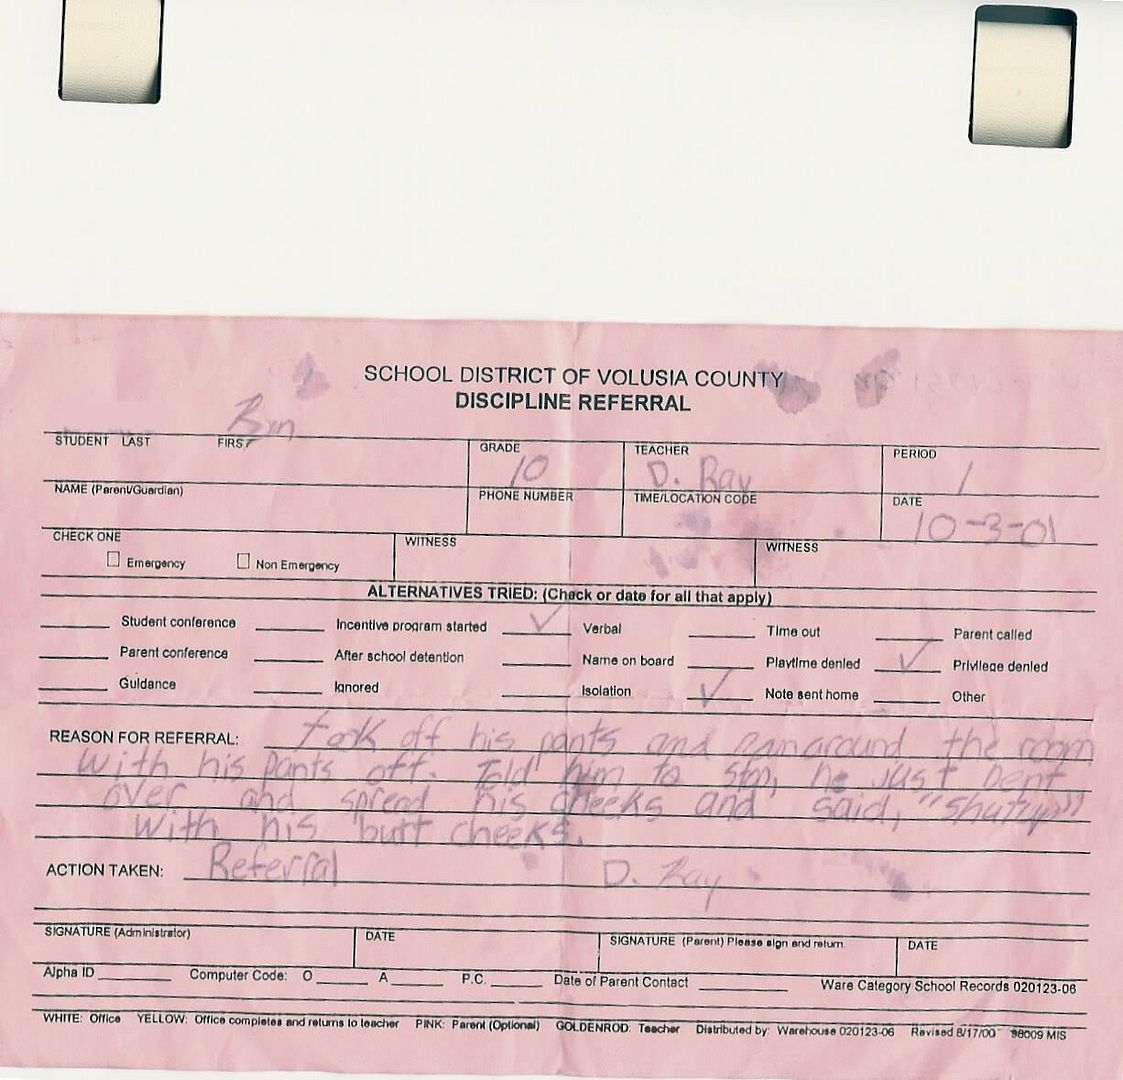 SCHOOL DISTRICT OF VOLUSIA COUNTY
DISCIPLINE REFERRAL
STUDENT LAST FIRST
GRADE 10
TEACHER D. Ray
PERIOD 1
NAME (Parent/Guardian)
PHONE NUMBER
TIME/LOCATION CODE
DATE 10-3-01
CHECK ONE
Emergency Non Emergency
WITNESS
WITNESS
ALTERNATIVES TRIED: (Check or date for all that apply)
Student conference Incentive program started ✓ Verbal Time out Parent called
Parent conference After school detention Name on board Playtime denied ✓ Privilege denied
Guidance Ignored Isolation ✓ Note sent home Other
REASON FOR REFERRAL: took off his pants and ran around the room
with his pants off. Told him to stop, he just bent
over and spread his cheeks and said, "shutup"
with his butt cheeks.
ACTION TAKEN: Referral D. Ray
SIGNATURE (Administrator) DATE SIGNATURE (Parent) Please sign and return. DATE
Alpha ID Computer Code: O A P.C. Date of Parent Contact Ware Category School Records 020123-06
WHITE: Office YELLOW: Office completes and returns to teacher PINK: Parent (Optional) GOLDENROD: Teacher Distributed by: Warehouse 020123-06 Revised 8/17/00 98009 MIS